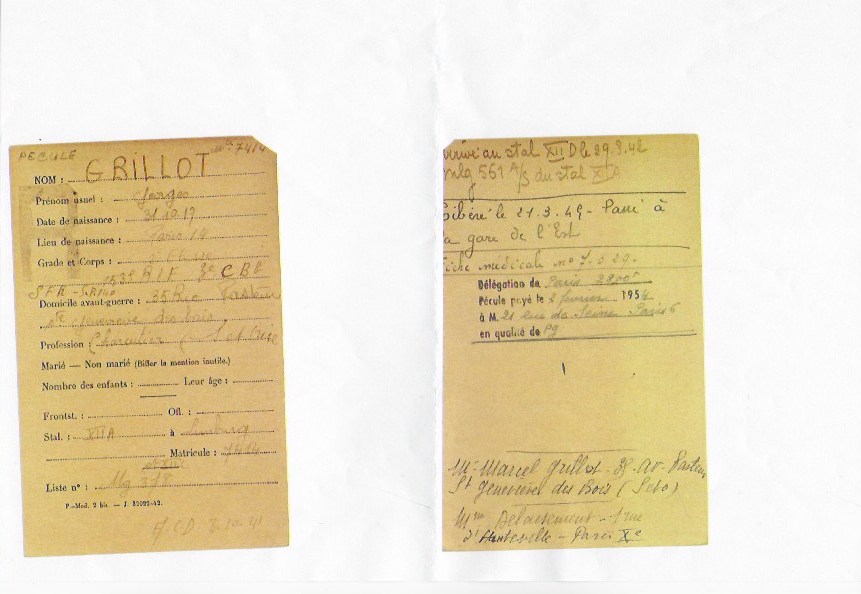 PECULE
7414
NOM : GRILLOT
Prénom usuel : Georges
Date de naissance : 31.10.17
Lieu de naissance : Paris 19
Grade et Corps : 2e Classe
153e R I F 3e C B E
Domicile avant-guerre : 35 Rue Pasteur
Ste Genevieve des bois
Profession : Charcutier (S et Oise
Marié — Non marié (Biffer la mention inutile.)
Nombre des enfants : Leur âge :
Frontst. : Ofl. :
Stal. : XII A à Limburg
Matricule : 7414
Liste n° : Mlg 318
P.-Mod. 2 bis. — J. 32022-42.
A.C.D. 8.10.41
au stal XII D le 29.3.42
mlg 561 A/S du stal XII A
Libéré le 21.3.45 - Passé à
la gare de l'Est
Fiche médicale no 7.029.
Délégation de Paris
Pécule payé le 2 février 195
à M. 21 rue de Seine Paris 6
en qualité de Pg
Mr Marcel Grillot 35 av. Pasteur
St Geneviève des Bois (Seto)
Mme Delaisement - 1 rue
d'Hauteville - Paris Xe